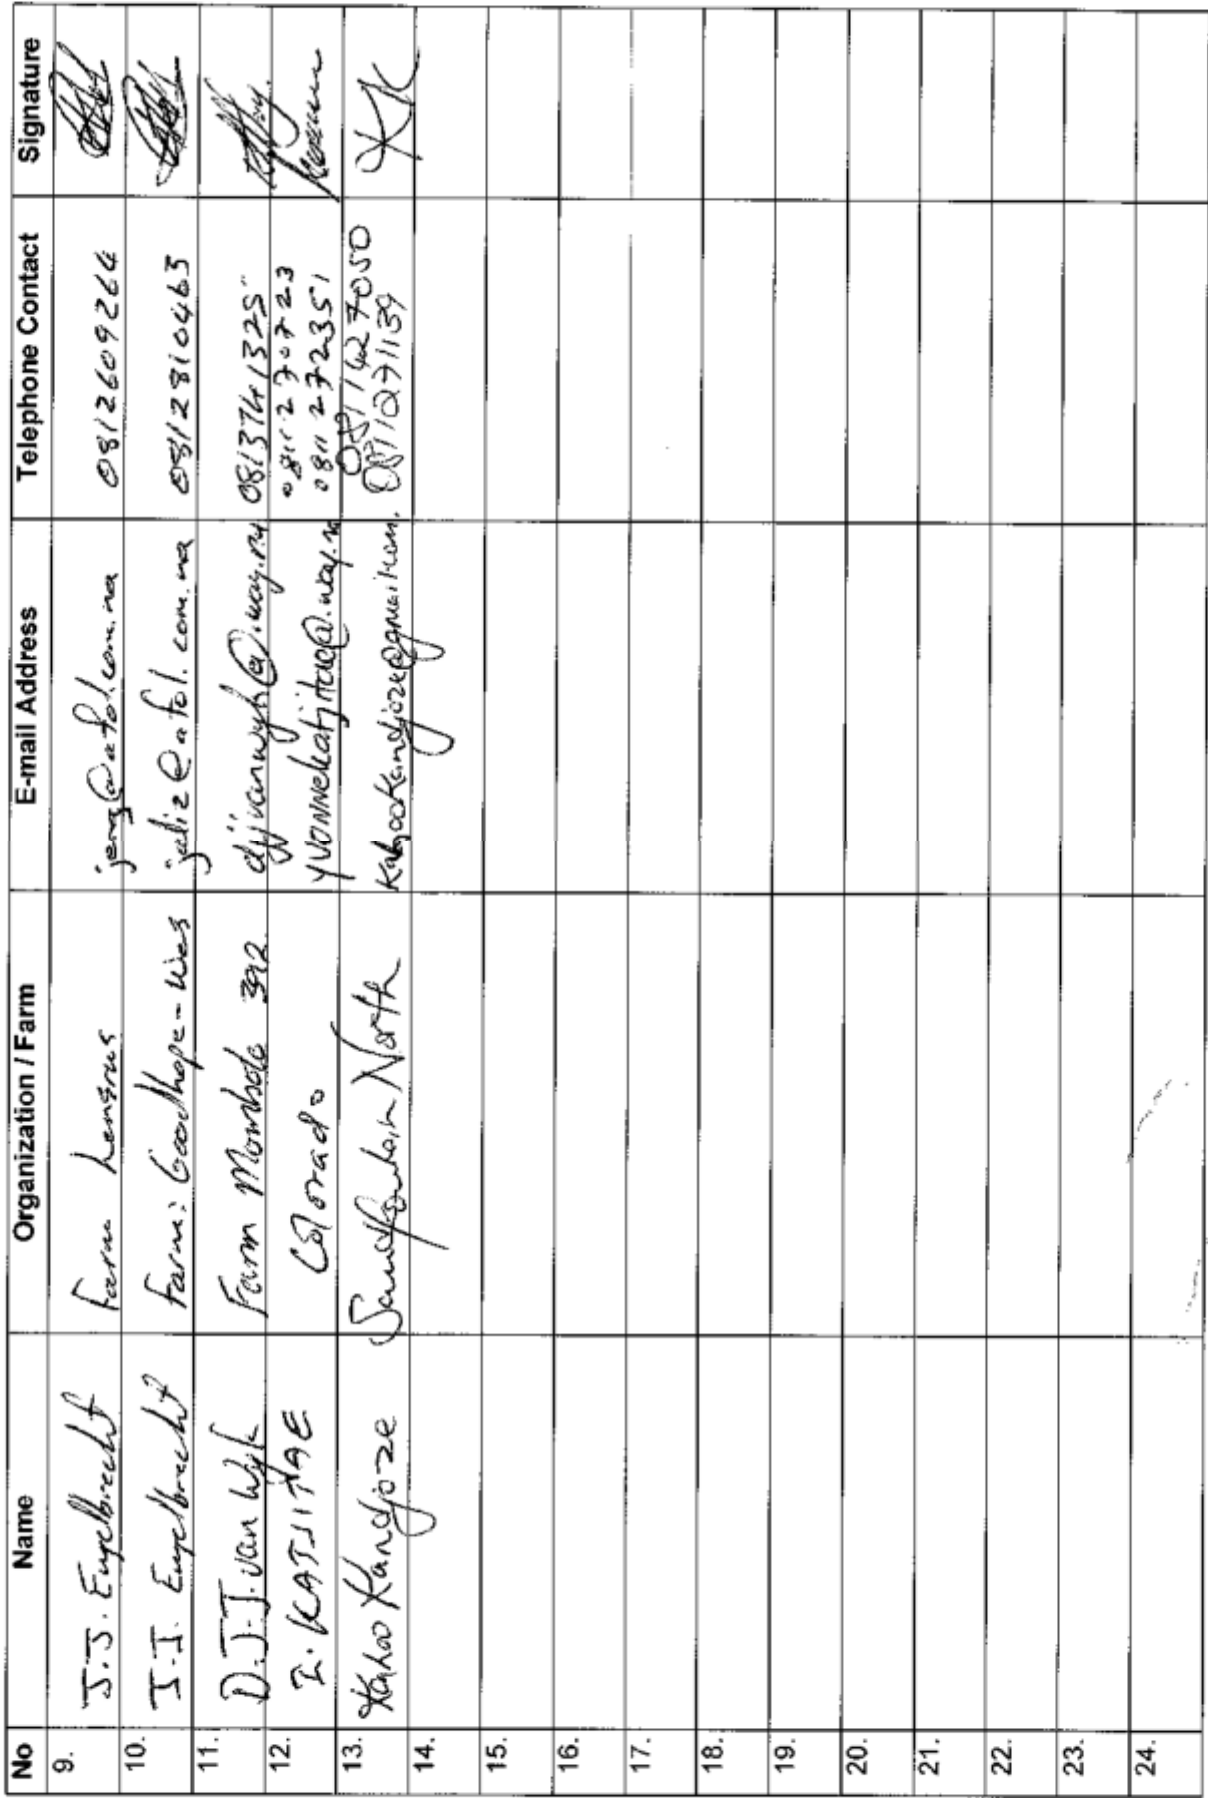 No Name Organization / Farm E-mail Address Telephone Contact Signature
9. J.J. Engelbrecht Farm 0812609264
10. J.I. Engelbrecht Farm: Goodhope-Wes jaliz@afol.com.na 0812810463
11. D.J.J. van Wyk Farm 392 djjvanwyk@.way.na 0813741325
12. I. KATJITAE Colorado yvonnekatjitae@.way.na 0811270723
0811272351
13. Kahoo Kandjoze Sandfontein North 0811427050
0811271139
14.
15.
16.
17.
18.
19.
20.
21.
22.
23.
24.